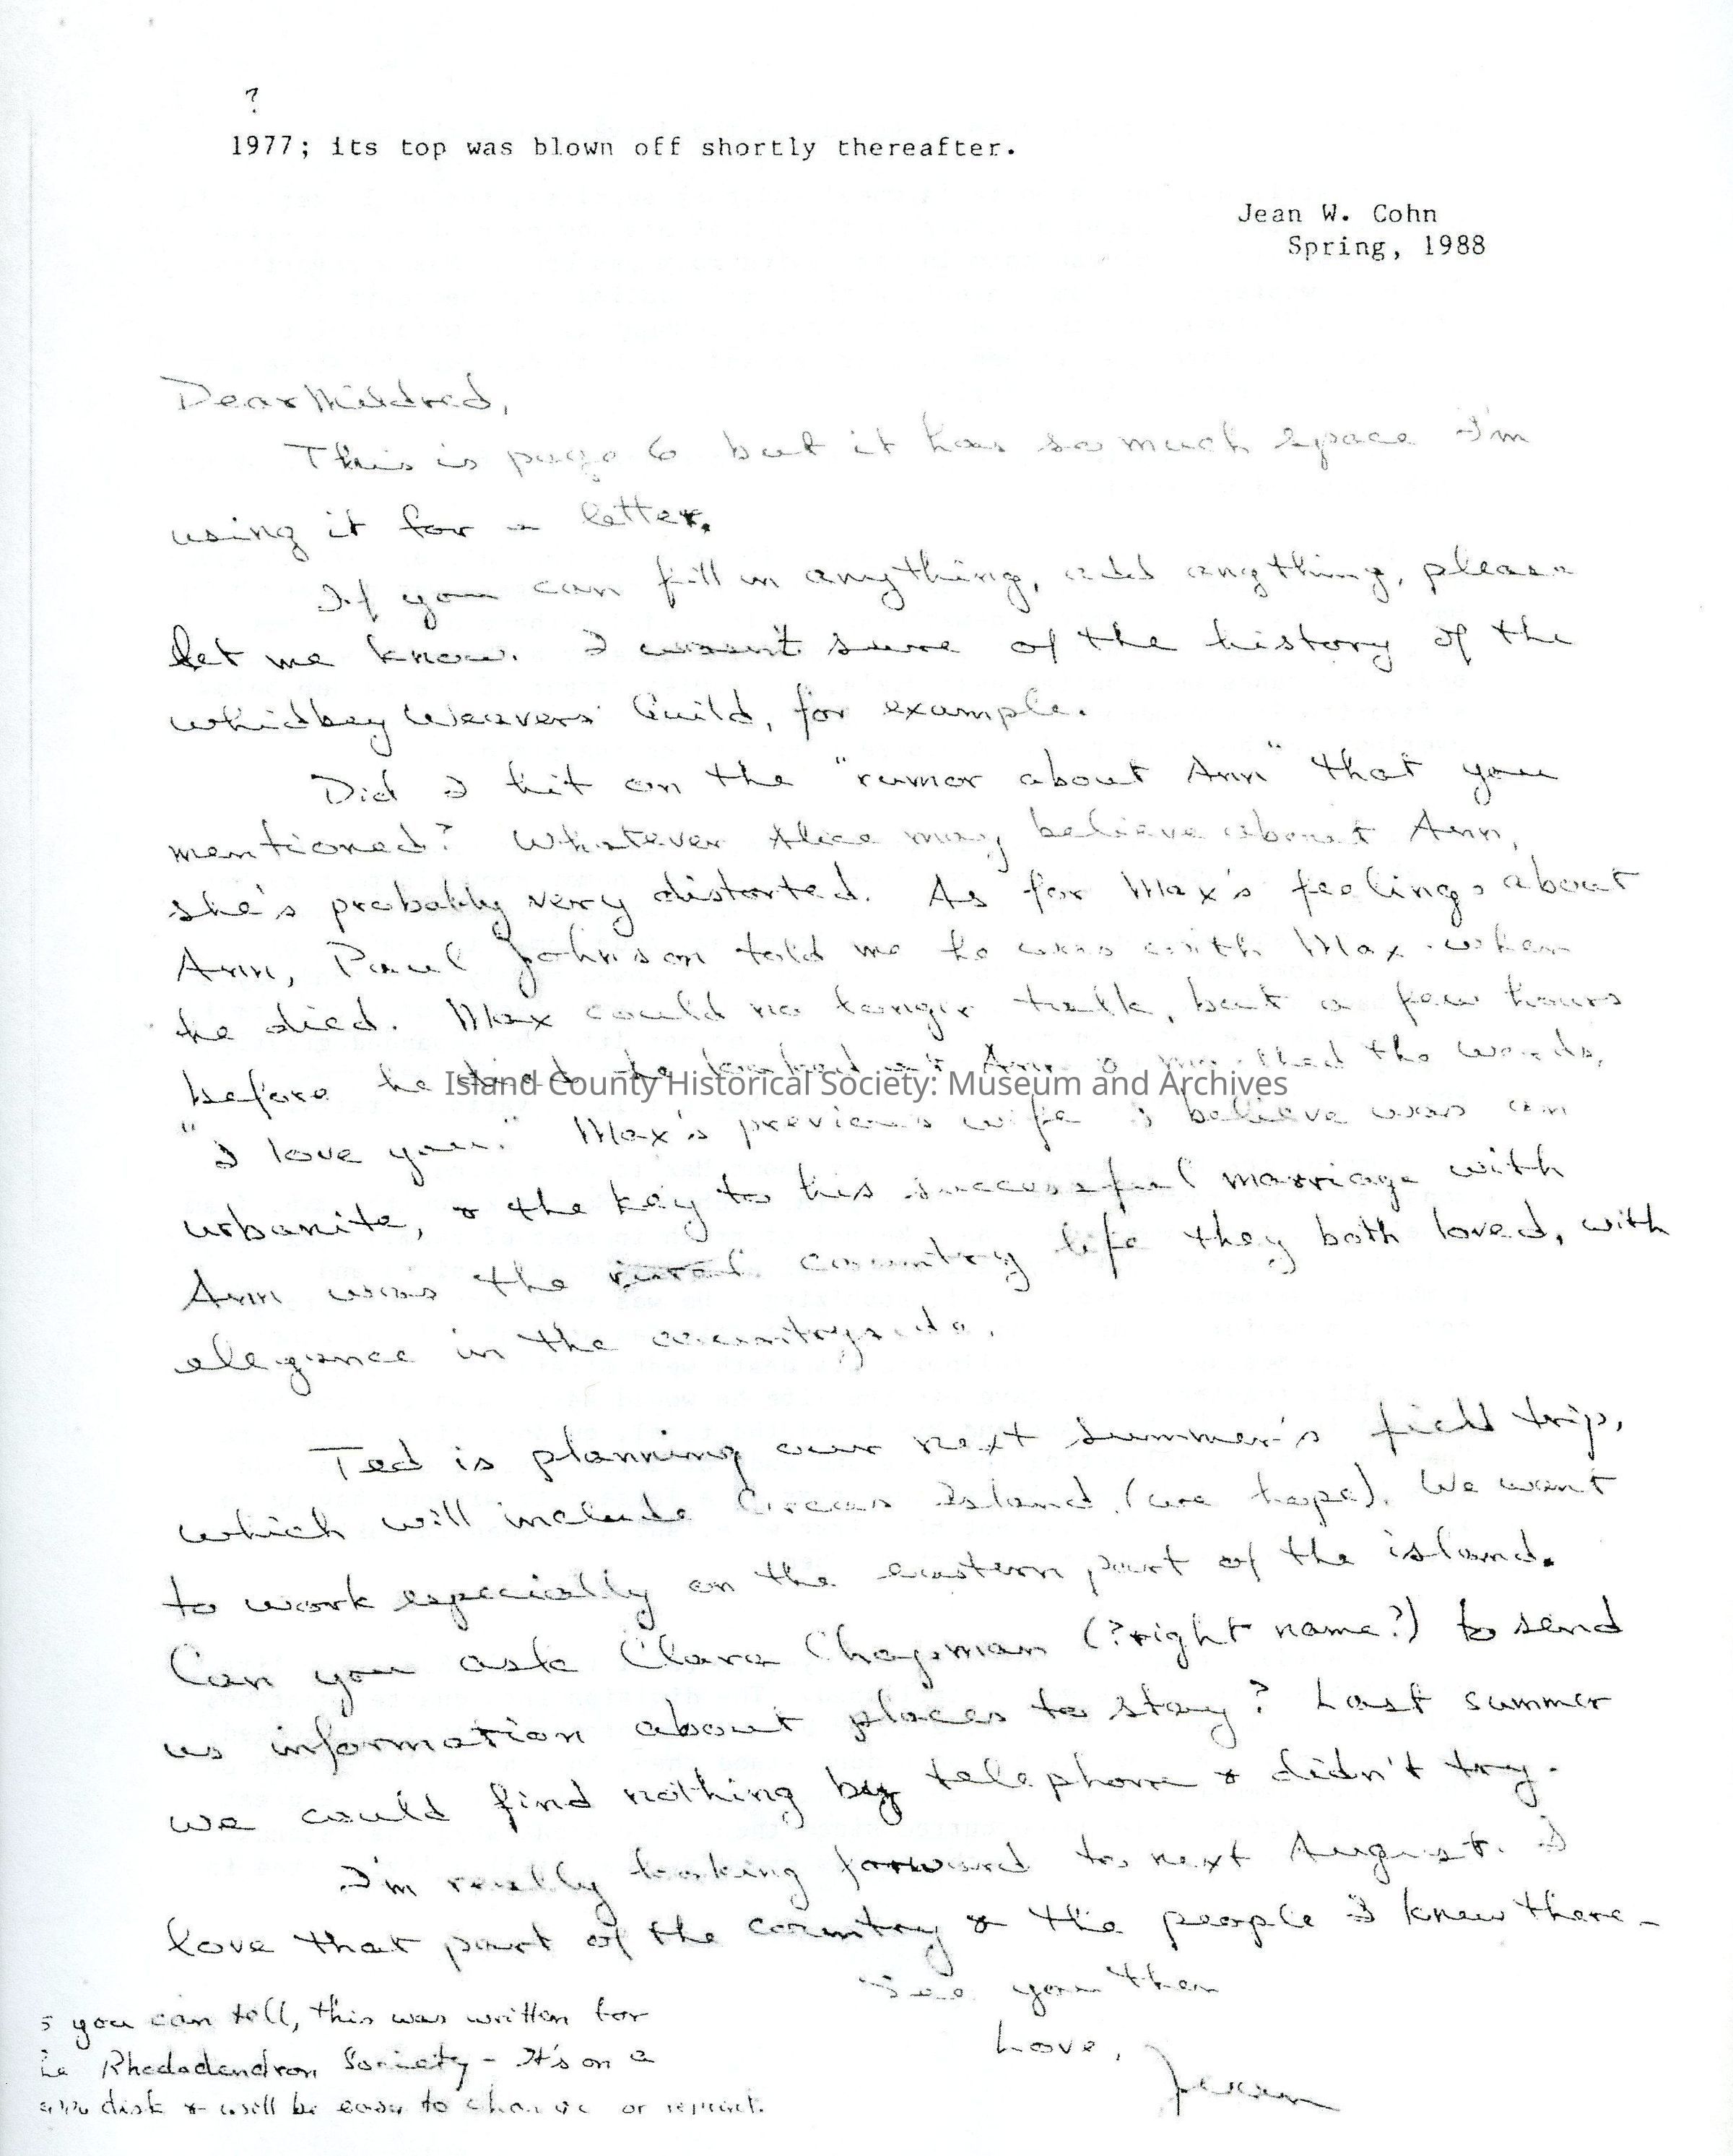 ?
1977; its top was blown off shortly thereafter.
Jean W. Cohn
Spring, 1988
Dear Mildred,
This is page 6 but it has so much space I'm
using it for a letter.
If you can fill in anything, add anything, please
let me know. I wasn't sure of the history of the
Whidbey Weavers' Guild, for example.
Did I hit on the "rumor about Ann" that you
mentioned? Whatever Alice may believe about Ann,
she's probably very distorted. As for Max's feelings about
Ann, Paul Johnson told me he was with Max when
he died. Max could no longer talk, but a few hours
before he died he looked at Ann & mouthed the words,
Island County Historical Society: Museum and Archives
"I love you." Max's previous wife I believe was an
urbanite, & the key to his successful marriage with
Ann was the rural country life they both loved, with
elegance in the countryside.
Ted is planning our next summer's field trip,
which will include Orcas Island (we hope). We want
to work especially on the eastern part of the island.
Can you ask Clara Chapman (?right name?) to send
us information about places to stay? Last summer
we could find nothing by telephone & didn't try.
I'm really looking forward to next August. I
love that part of the country & the people I knew there -
See you then
Love,
Jean
s you can tell, this was written for
he Rhododendron Society - It's on a
disk & will be easy to change or reprint.